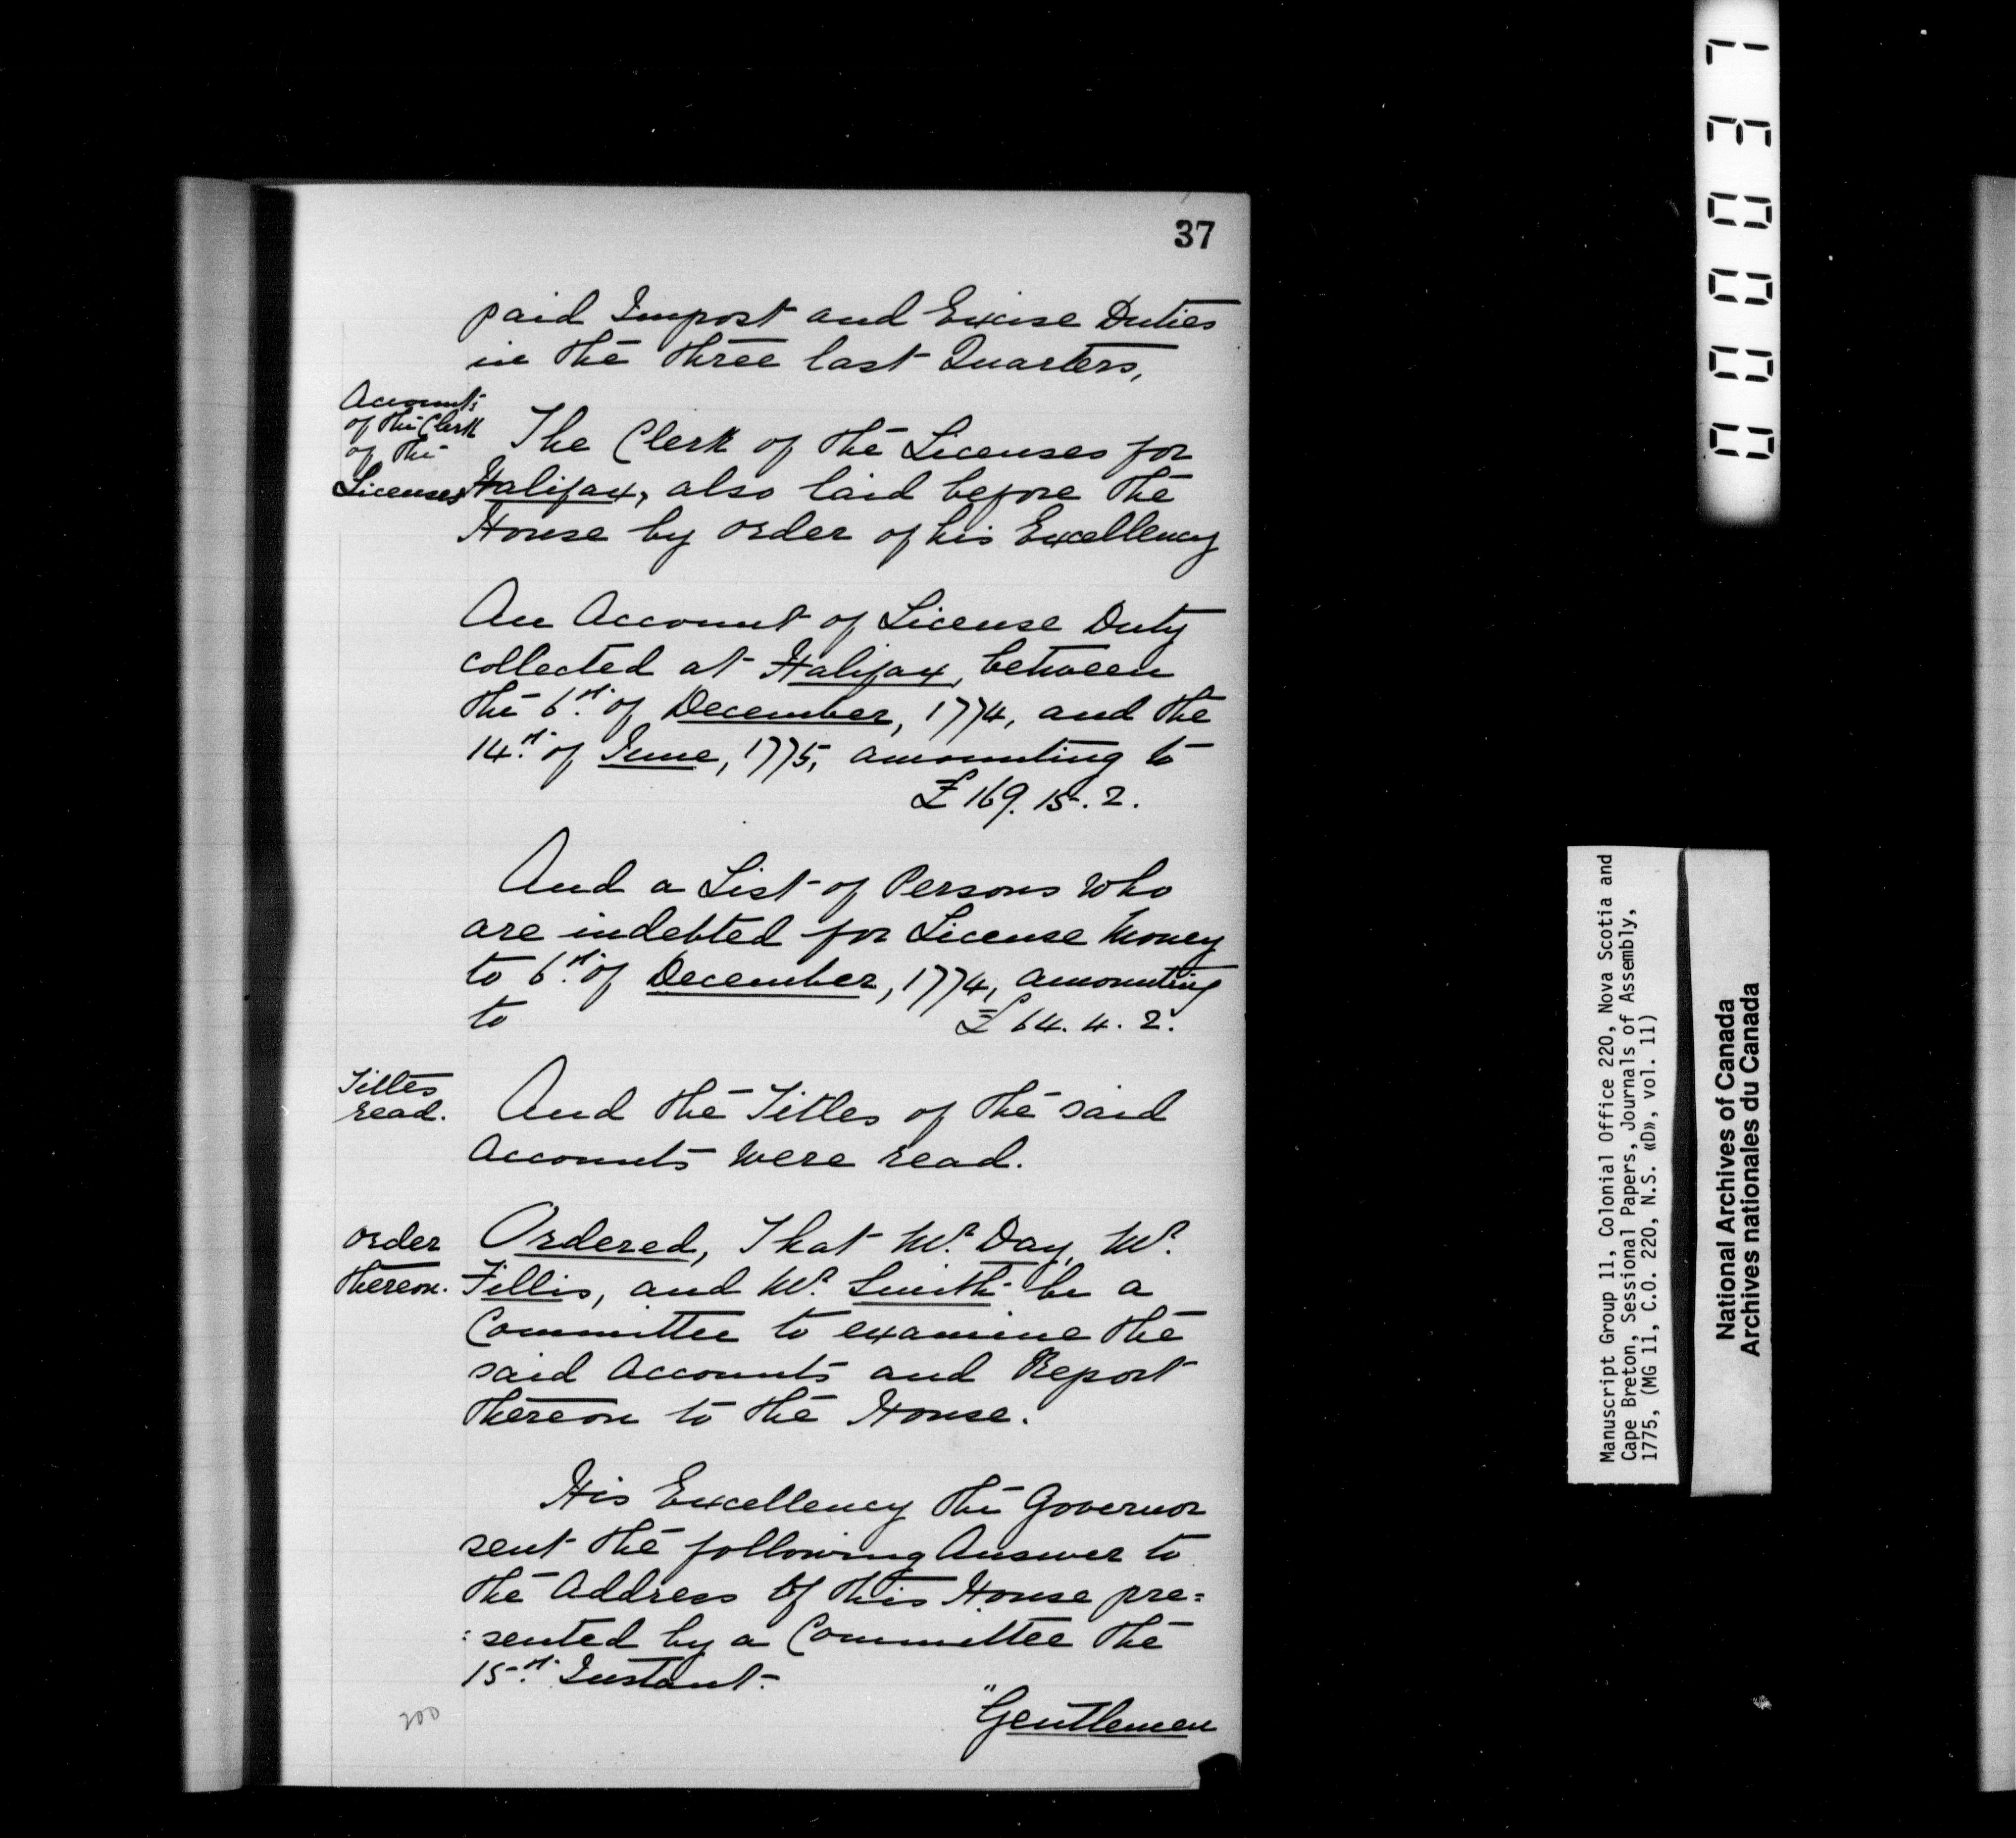 37
paid Impost and Excise Duties
in the three last Quarters,
Accounts
of the Clerk
of the
Licenses
The Clerk of the Licenses for
Halifax, also laid before the
House by order of his Excellency
An Account of License Duty
collected at Halifax, between
the 6th. of December, 1774, and the
14th. of June, 1775, amounting to
£169. 15. 2.
And a List of Persons who
are indebted for License Money
to 6th. of December, 1774, amounting
to £64. 4. 2.
Titles
read.
And the Titles of the said
Accounts were read.
order
thereon.
Ordered, That Mr. Day, Mr.
Fillis, and Mr. Smith be a
Committee to examine the
said Accounts and Report
thereon to the House.
His Excellency the Governor
sent the following Answer to
the Address Of this House pre=
:sented by a Committee the
15th. Instant.
"Gentlemen
200
Manuscript Group 11, Colonial Office 220, Nova Scotia and
Cape Breton, Sessional Papers, Journals of Assembly,
1775, (MG 11, C.O. 220, N.S. «D», vol. 11)
National Archives of Canada
Archives nationales du Canada